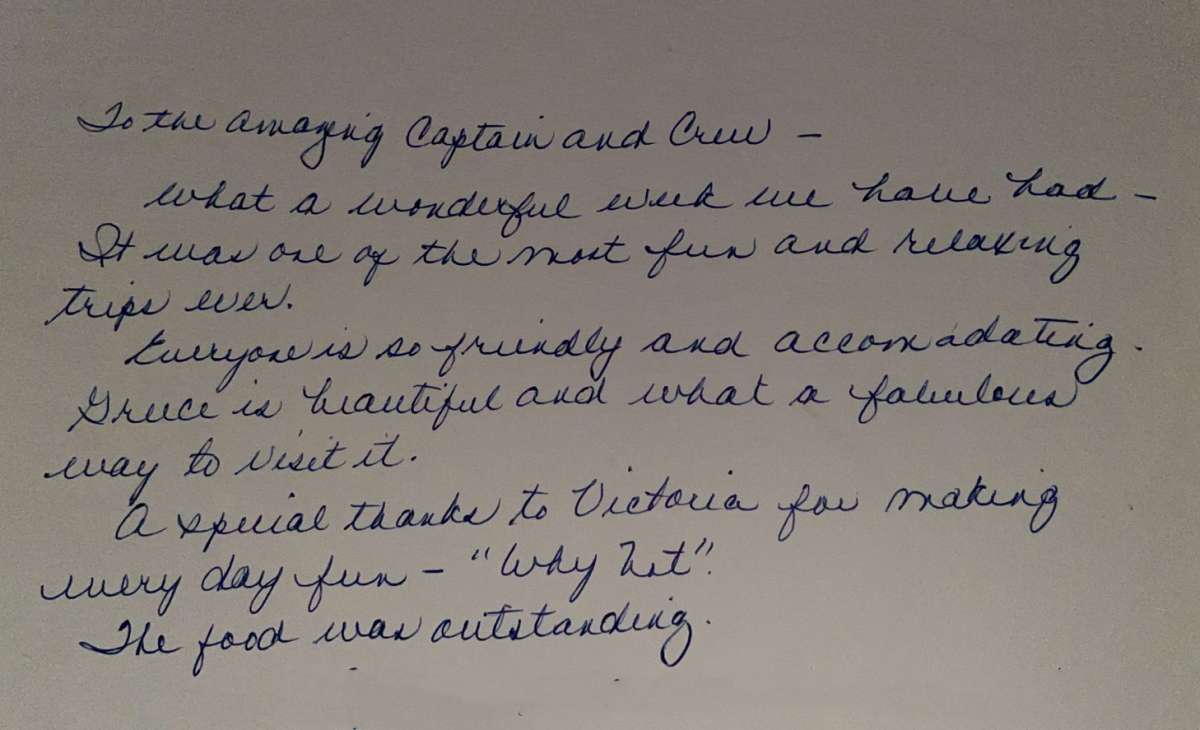 To the amazing Captain and Crew –
What a wonderful week we have had –
It was one of the most fun and relaxing
trips ever.
Everyone is so friendly and accomodating.
Greece is beautiful and what a fabulous
way to visit it.
A special thanks to Victoria for making
every day fun – "Why Not".
The food was outstanding.